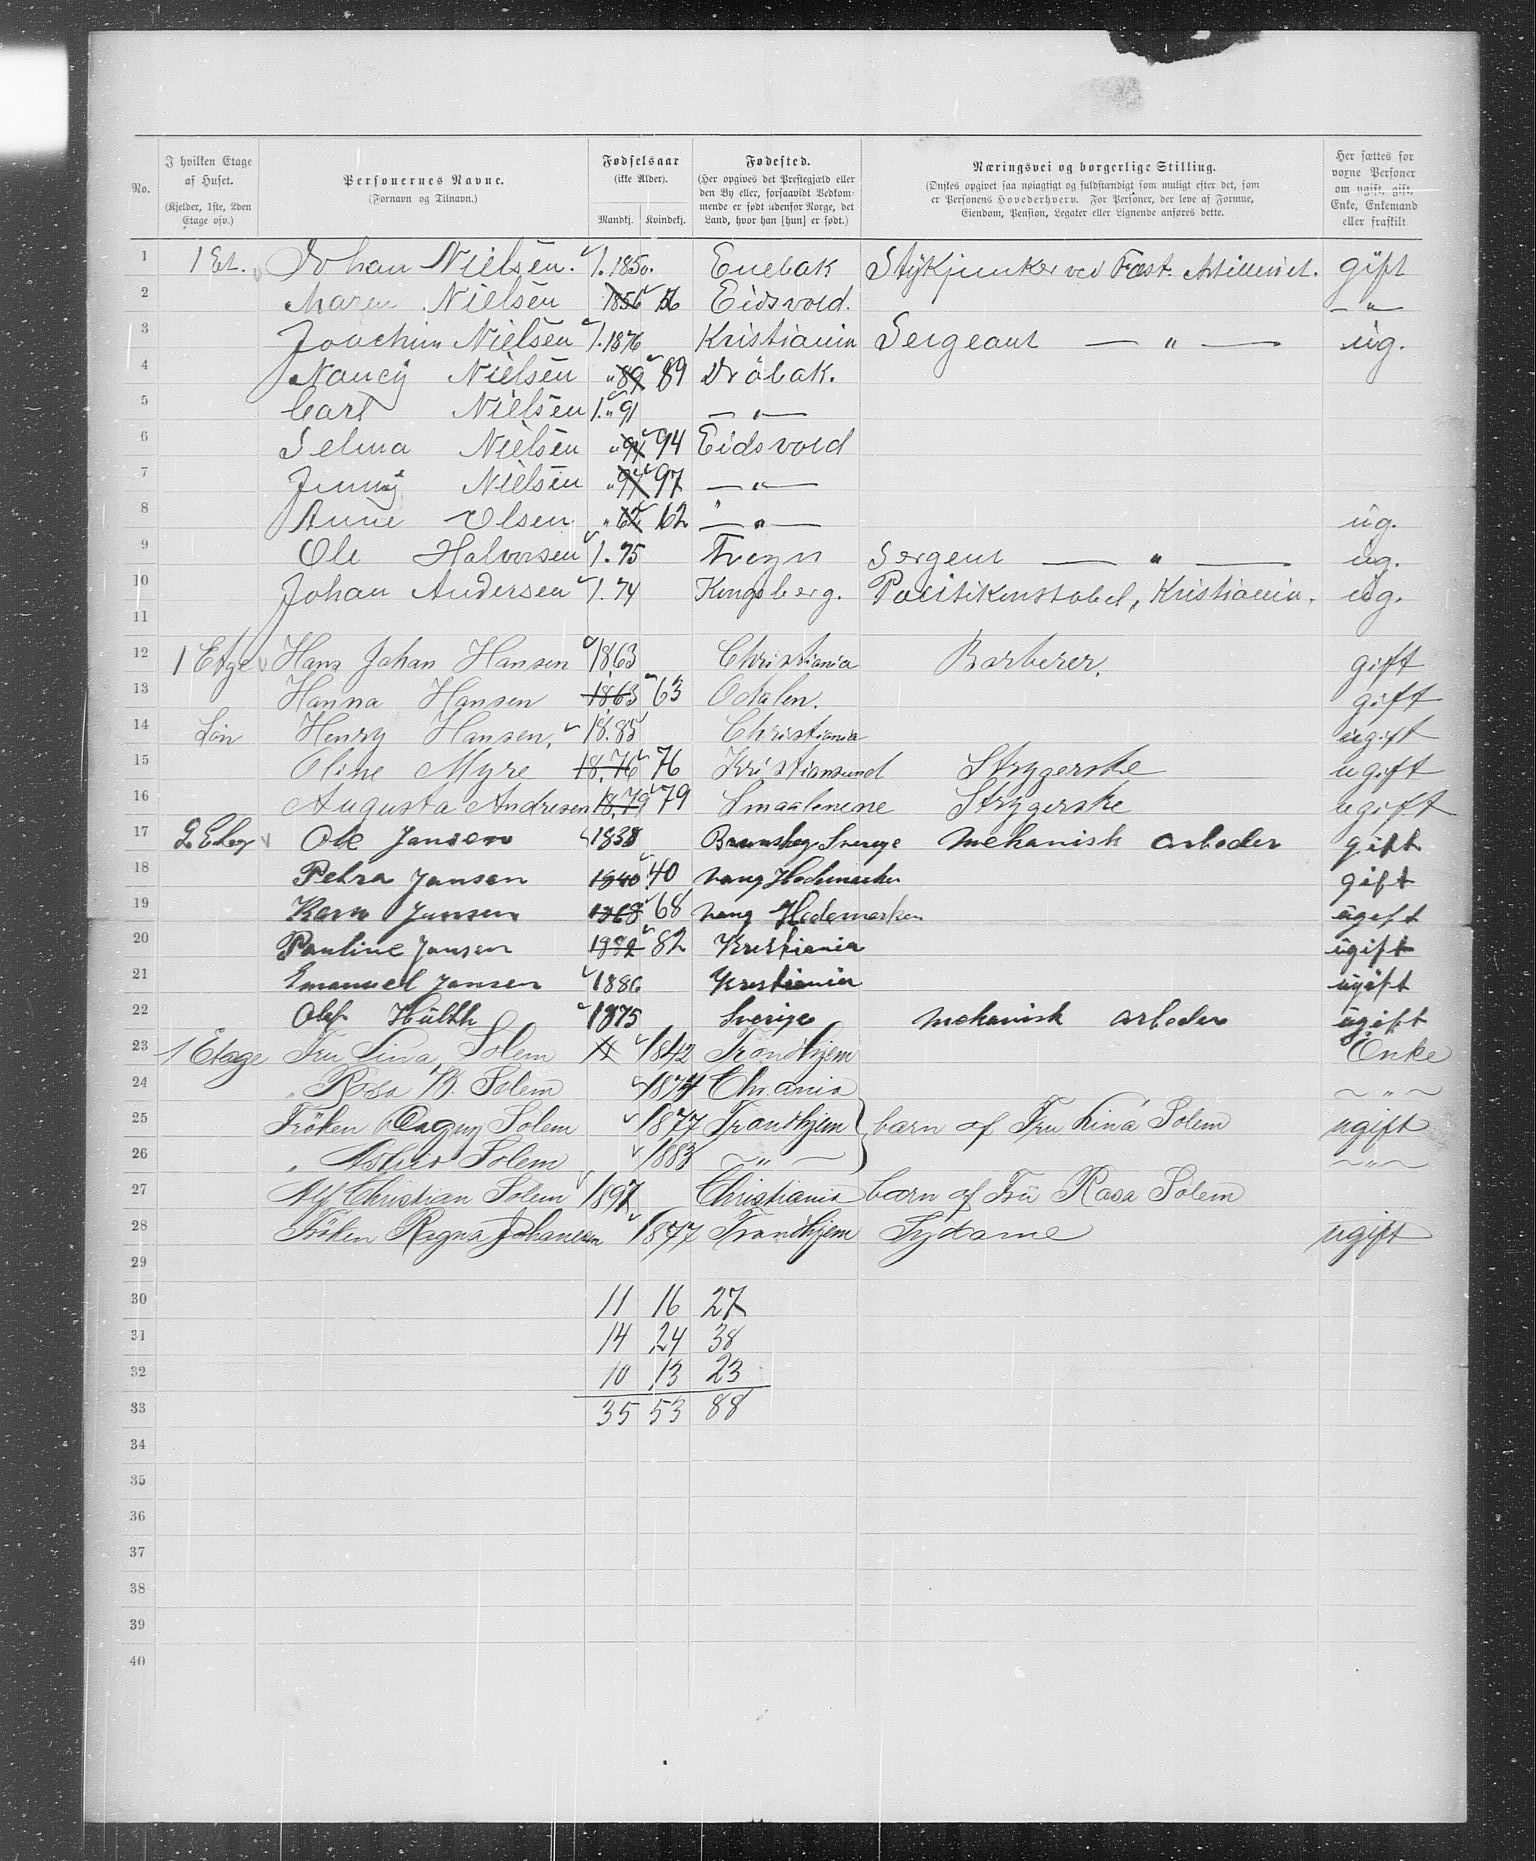 No.
I hvilken Etage af Huset. (Kjelder, 1ste, 2den Etage osv.)
Personernes Navne. (Fornavn og Tilnavn.)
Fødselsaar (ikke Alder). Mandkj. Kvindekj.
Fødested. (Her opgives det Prestegjæld eller den By eller, forsaavidt Vedkommende er født udenfor Norge, det Land, hvor han [hun] er født.)
Næringsvei og borgerlige Stilling. (Ønskes opgivet saa nøiagtigt og fuldstændigt som muligt efter det, som er Personens Hovederhverv. For Personer, der leve af Formue, Eiendom, Pension, Legater eller Lignende anføres dette.)
Her sættes for voxne Personer om ugift, gift, Enke, Enkemand eller fraskilt
1 1 Et. Johan Nielsen. 1850. Enebak Stykjunker ved Fæst. Artilleriet. gift
2 Maren Nielsen 1856 56 Eidsvold. — " —
3 Joachim Nielsen 1876 Kristiania Sergeant — " — ug.
4 Nancy Nielsen " 89 89 Drøbak.
5 Carl Nielsen " 91 — " —
6 Selma Nielsen " 94 94 Eidsvold
7 Jenny Nielsen " 97 97 — " —
8 Anne Olsen " 62 62 — " — ug.
9 Ole Halvorsen 75 Sergent — " — ug.
10 Johan Andersen 74 Kongsberg. Politikonstabel, Kristiania. ug.
11
12 1 Etge Hans Johan Hansen 1863 Christiania Barberer. gift
13 Hanna Hansen 1863 63 Odalen. gift
14 Henry Hansen. 18.85 Christiania ugift
15 Oline Myre 18.76 76 Kristiansund Strygerske ugift
16 Augusta Andresen 18.79 79 Smaalenene Strygerske ugift
17 Ole Jansen 1838 Sverige Mekanisk arbeder gift
18 Petra Jansen 1840 40 Vang Hedemarken gift
19 Karn Jansen 1868 68 Vang Hedemarken ugift
20 Pauline Jansen 1882 82 Kristiania ugift
21 Emanuel Jansen 1886 Kristiania ugift
22 Olef Hülth 1875 Sverige Mekanisk arbeder ugift
23 1 Etage Fru Lina Solem 1842 Trondhjem Enke
24 " Rosa B. Solem 1874 Chr.ania — " —
25 Frøken Dagny Solem 1877 Trondhjem } børn af Fru Lina Solem ugift
26 " Astrid Solem 1883 — " — — " —
27 Alf Christian Solem 1897 Christiania børn af Fru Rosa Solem
28 Frøken Ragna Johansen 1877 Trondhjem Sydame ugift
29
30 11 16 27
31 14 24 38
32 10 13 23
33 35 53 88
34
35
36
37
38
39
40